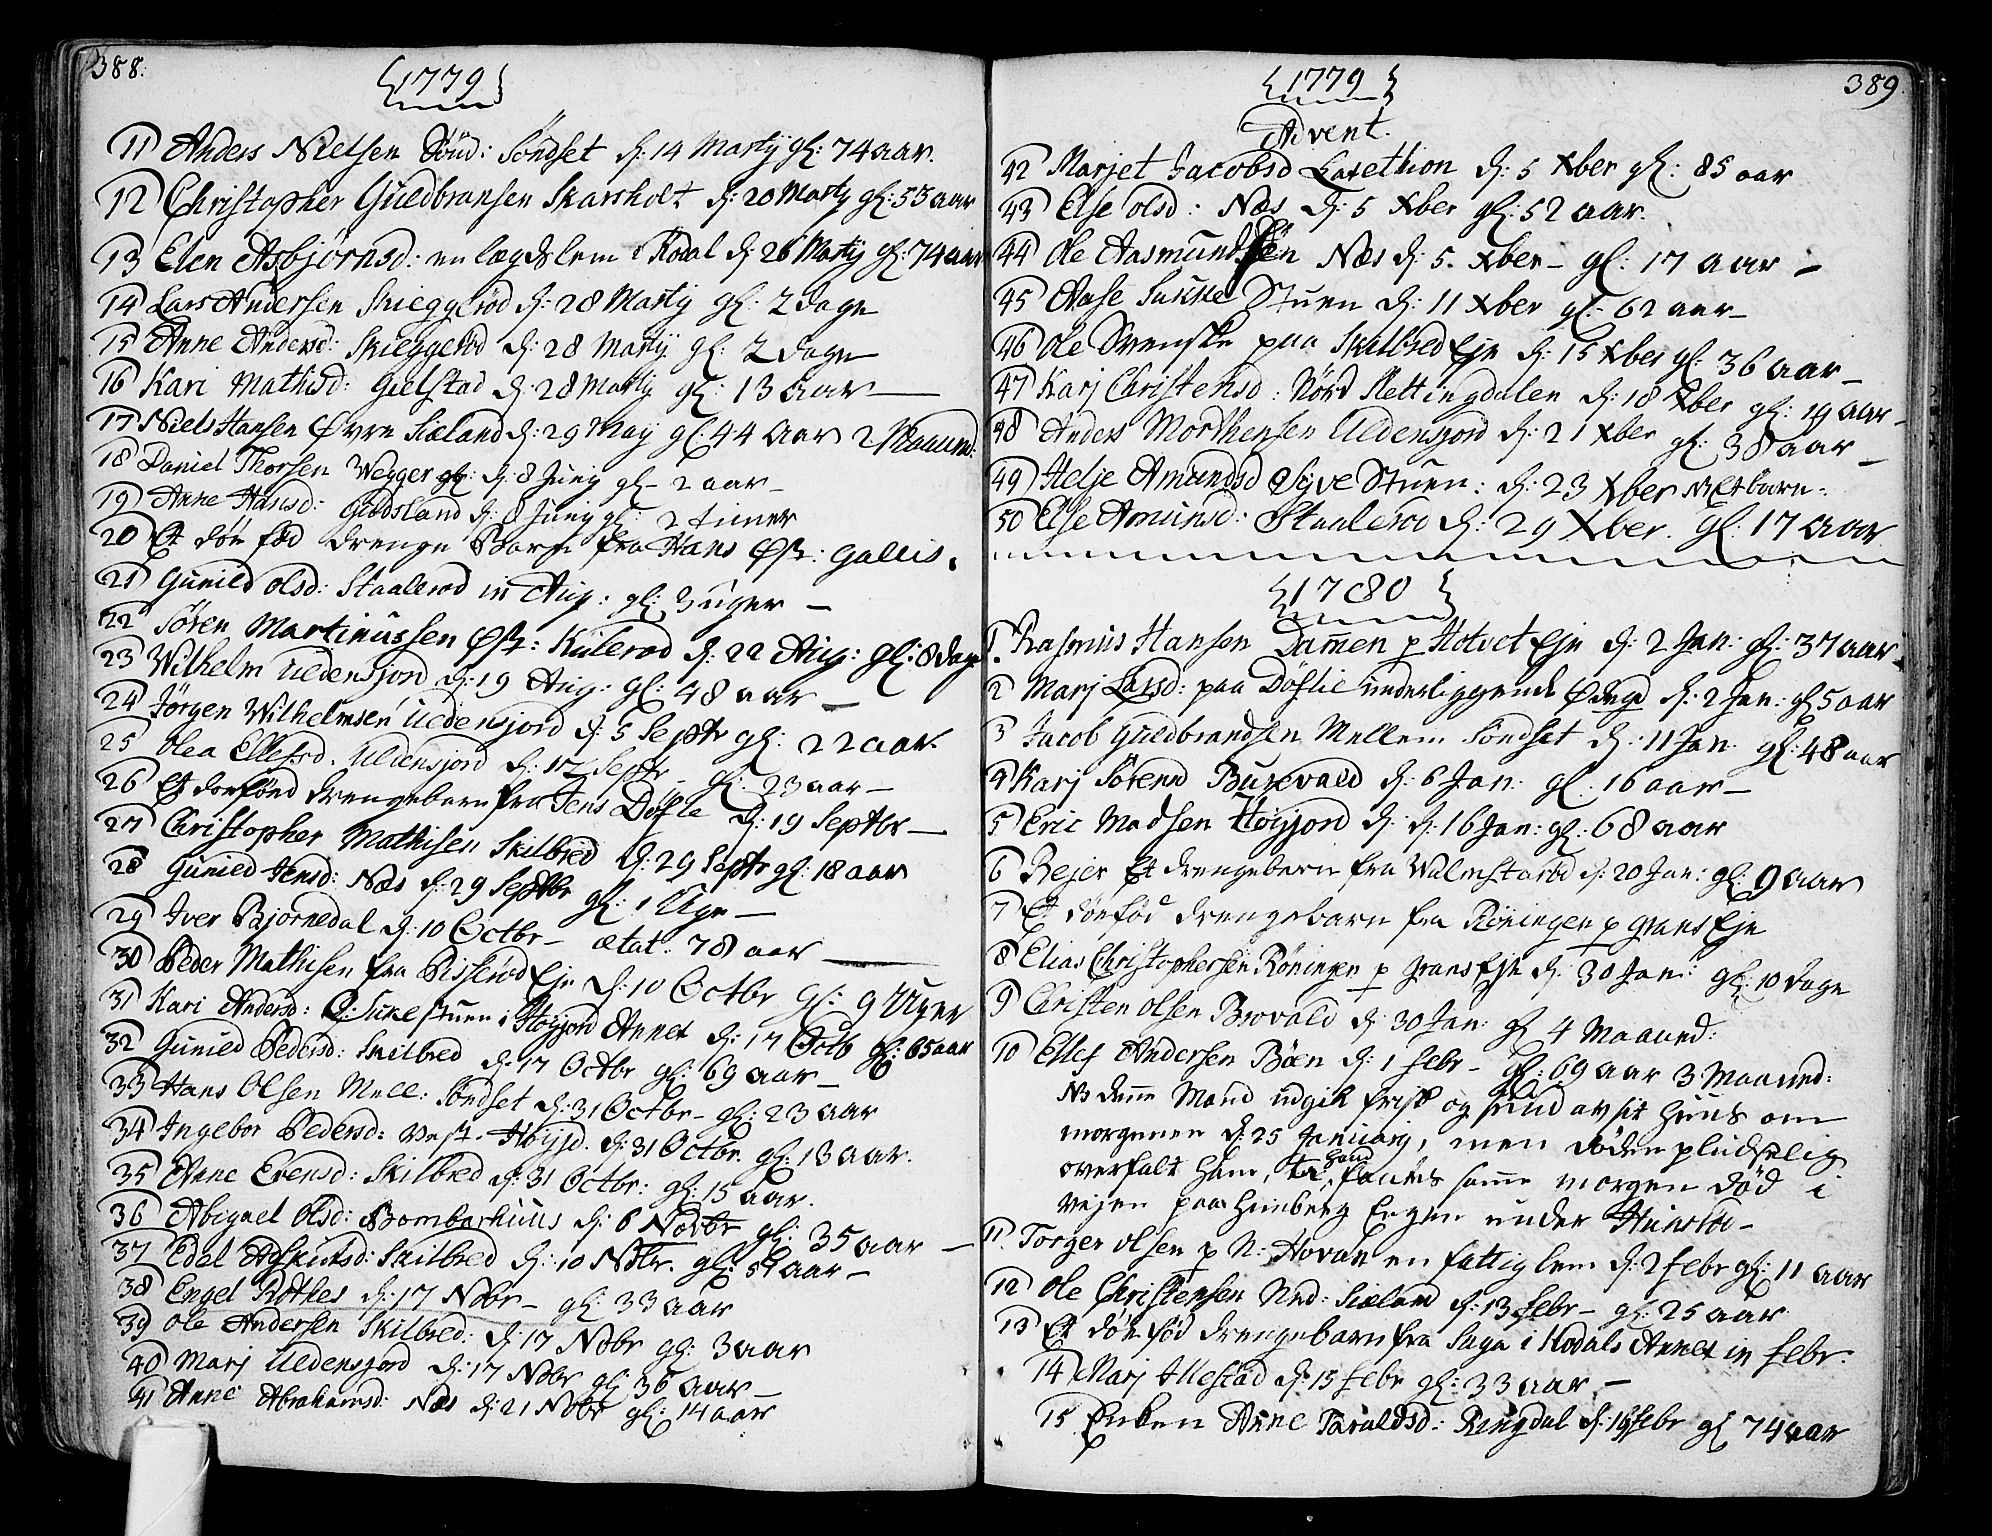 388:
1779
11 Anders Nielsen Sønd: Søndset d: 14 Martij gl: 74 aar.
12 Christopher Guldbransen Skarsholt d: 20 Martij gl: 55 aar
13 Elen Asbjørnsd: en lægdslem i Kodal d: 26 Martij gl: 74 aar
14 Lars Andersen Skieggerød d: 28 Martij gl: 2 dage
15 Anne Andersd: Skieggerød d: 28 Martij gl: 2 dage
16 Kari Mathisd: Gielstad d: 28 Martij gl: 13 Aar
17 Niels Hansen Øvre Siæland d: 29 Maij gl: 44 Aar 2 Maaned:
18 Daniel Thorsen Wegger d: 8 Junij gl- 2 aar-
19 Anne Hansd: Gidsland d: 8 Junij gl: 2 timer
20 Et død fød drenge Barn fra Hans Øst: Gallis.
21 Gunild Olsd: Staalerød in Aug: gl: 3 uger -
22 Søren Martinussen Øst: Kulerød d: 22 Aug: gl: 8 dage
23 Wilhelm Uldensjord d: 19 Aug: gl: 48 aar -
24 Jørgen Wilhelmsen Uldensjord d: 5 Septr gl: 22 aar-
25 Olea Ellefsd. Uldensjord d: 12 Septr- gl: 23 aar-
26 Et dødfød drengebarn fra Jens Døfle d: 19 Septbr-
27 Christopher Mathisen Skilbred d: 29 Septr gl: 18 aar
28 Gunild Jensd: Næs d: 29 Septbr gl: 1 Uge-
29 Iver Bjørnedal d: 10 Octbr- ætat: 78 aar
30 Peder Mathisen fra Pisserød Eje d: 10 Octbr gl: 9 Uger
31 Kari Andersd: Stuen i Høyjord Annex d: 17 Octb gl: 65 aar
32 Gunild Pedersd: Skilbred d: 17 Octbr gl: 69 aar-
33 Hans Olsen Mell: Søndset d: 31 Octbr- gl: 23 aar
34 Ingebor Pedersd: Vest- Høyjd. d: 31 Octbr. gl: 13 aar.
35 Anne Evensd: Skilbred d: 31 Octbr: gl: 15 aar.
36 Abigael Olsd: Bomberhuus d: 6 Novbr gl: 35 aar -
37 Edel Skilbred d: 10 Nobr. gl: aar-
38 Engel Rothes d: 17 Nobr- gl: 33 aar
39 Ole Andersen Skilbred: d: 17 Nobr gl: 3 aar
40 Marj Uldensjord d: 17 Nobr gl: 36 aar-
41 Anne Abrahamsd: Næs d: 21 Nobr gl: 14 aar
389.
1779
Advent.
42 Marjet Jacobsd d: 5 Xber gl: 85 aar
43 Else olsd: Næs d: 5 Xber gl: 52 aar.
44 Ole Aasmundsen Næs d: 5. Xber- gl: 17 aar -
45 Aase Stuen d: 11 Xber gl: 62 aar-
46 Ole Svenske paa Skilbred Eje d: 15 Xber gl: 36 aar-
47 Karj Christensd: Nord Slettingdalen d: 18 Xber gl: 19 aar-
48 Anders Morthensen Uldensjord d: 21 Xber gl: 38 aar-
49 Helje Amundsd Stuen: d: 23 Xber
50 Else Amunsd: Staalerød d: 29 Xber. gl: 17 aar
1780
1. Rasmus Hansen Damen p Hotvet Eje d: 2 Jan: gl: 37 aar
2 Marj Larsd: paa Døflie underliggende d: 2 Jan: gl 5 aar
3 Jacob Guldbrandsen Mellem Søndset d: 11 Jan: gl: 48 aar
4 Karj Sørensd d: 6 Jan: gl: 16 aar-
5 Eric Madsen Høyjord d: 16 Jan: gl: 68 aar
6 Rejer Et drengebarn fra Walmstarød d: 20 Jan: gl: 9 Aar
7 Et dødfød drengebarn fra Røningen p Grans Eje
8 Elias Christophersen Røningen p Grans Eje d: 30 Jan: gl: 10 dage
9 Christen Olsen Brovald d: 30 Jan: gl 4 Maaned:
10 Ellef Andersen Bøen d: 1 febr- gl: 69 aar 3 Maaned:
NB denne Mand udgik frisk og sund av sit Huus om
morgenen d: 25 Januarij, men døden pludselig
overfalt ham, ta hand fantes samme morgen død i
vejen paa Himberg Engen under Hunstok-
11. Torger Olsen p N: Hovan en fattig lem d: 2 febr gl: 11 aar
12 Ole Christensen Ned: Siæland d: 13 febr- gl: 25 aar
13 Et død fød drengebarn fra Saga i Kodals Annex in febr:
14 Marj Allestad d: 15 febr gl: 33 aar -
15 Enken Anne Taraldsd: Ringdal d: 19 febr gl 74 aar